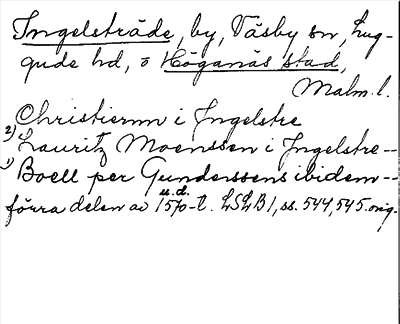 Ingelsträde, by, Väsby sn, Lug-
gude hd, ö Höganäs stad,
Malm. l.
Christiernn i Ingelstre
2) Lauritz Moenssen i Ingelstre --
1) Boell per Gunderssens ibidem --
u.d.
förra delen av 1570-t. LSLB1, ss. 544, 545. orig.